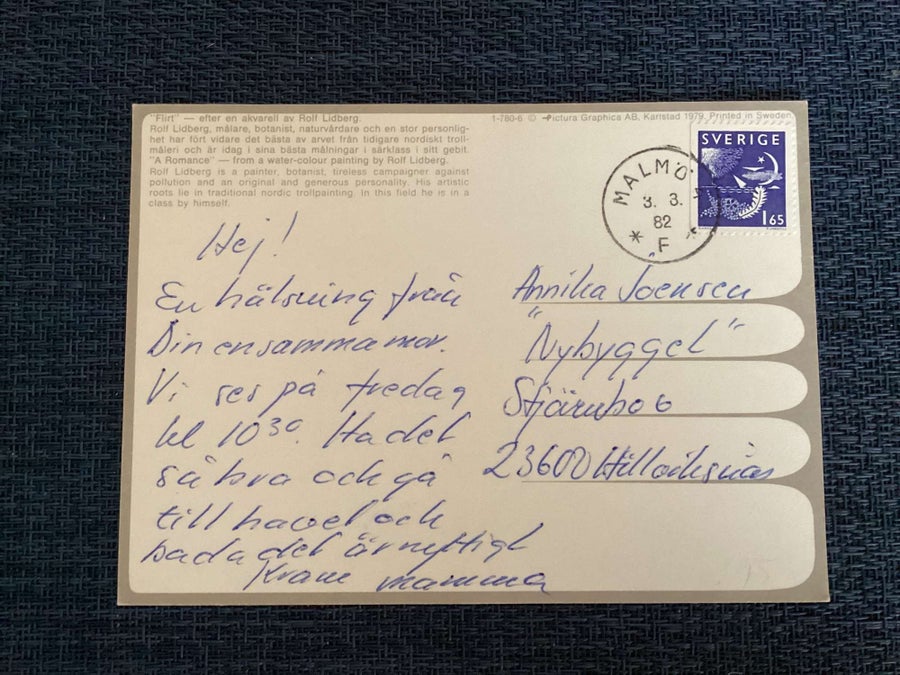 "Flirt" — efter en akvarell av Rolf Lidberg.
Rolf Lidberg, målare, botanist, naturvårdare och en stor personlig-
het har fört vidare det bästa av arvet från tidigare nordiskt troll-
måleri och är idag i sina bästa målningar i särklass i sitt gebit.
"A Romance" — from a water-colour painting by Rolf Lidberg.
Rolf Lidberg is a painter, botanist, tireless campaigner against
pollution and an original and generous personality. His artistic
roots lie in traditional nordic trollpainting. In this field he is in a
class by himself.
1-780-6 © Pictura Graphica AB, Karlstad 1979. Printed in Sweden.
SVERIGE
1 65
MALMÖ
3. 3.
82
* F *
Hej!
En hälsning från
Din ensamma mor.
Vi ses på fredag
kl 10 30. Ha det
så bra och gå
till havet och
bada det är nyttigt
Kram mamma
Annika Joensen
"Nybygget"
Stjärnbo 6
23600 Höllviksnäs